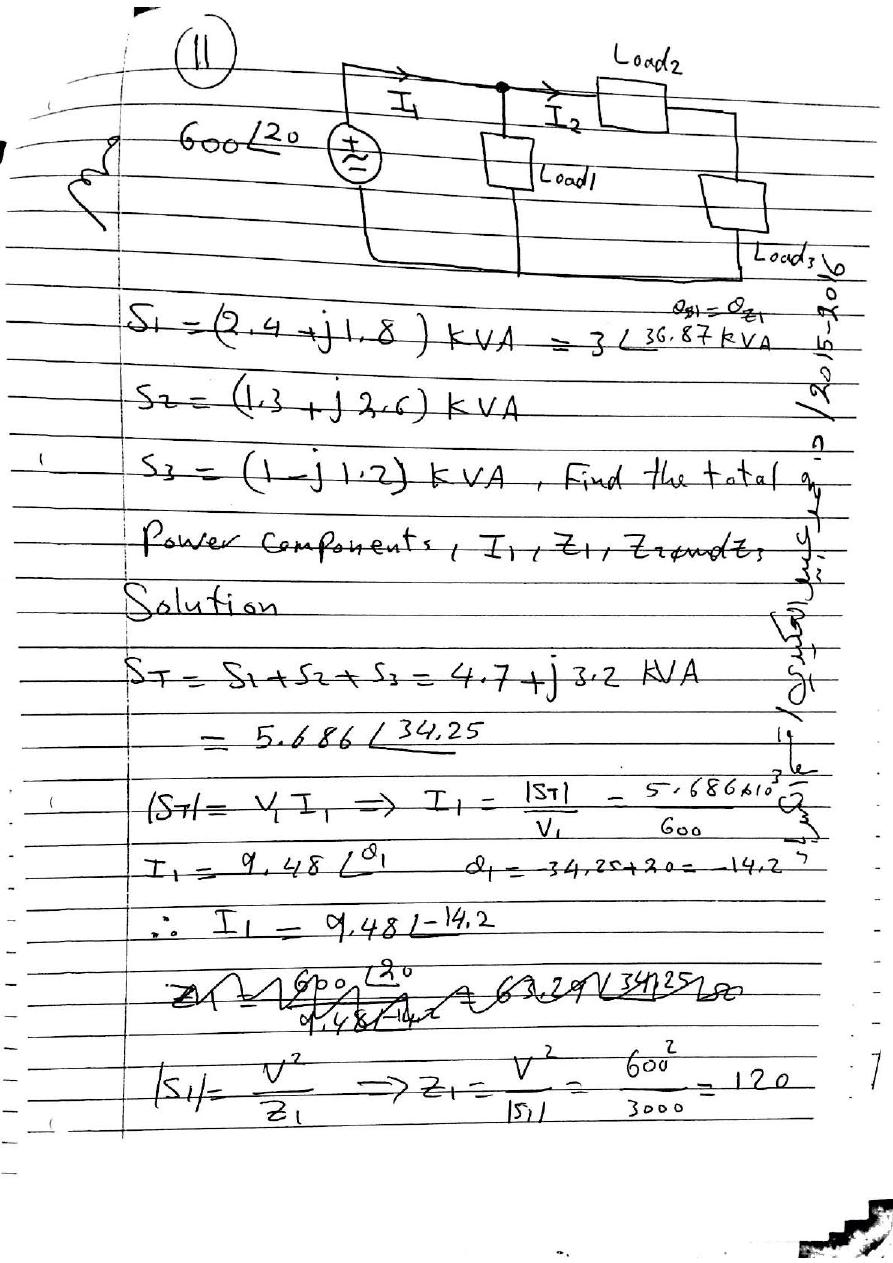 11
Load2
I1
I2
600∠20
Load1
Load3
θs1 = θz1
S1 = (2.4 + j1.8) KVA = 3∠36.87 KVA
S2 = (1.3 + j2.6) KVA
S3 = (1 - j1.2) KVA, Find the total
Power Components, I1, Z1, Z2 and Z3
Solution
ST = S1 + S2 + S3 = 4.7 + j3.2 KVA
= 5.686∠34.25
|ST| = V1 I1 => I1 = |ST| / V1 = 5.686x10³ / 600
I1 = 9.48∠θ1 θ1 = -34.25+20 = -14.2
∴ I1 = 9.48∠-14.2
|S1| = V² / Z1 => Z1 = V² / |S1| = 600² / 3000 = 120
2015-2016